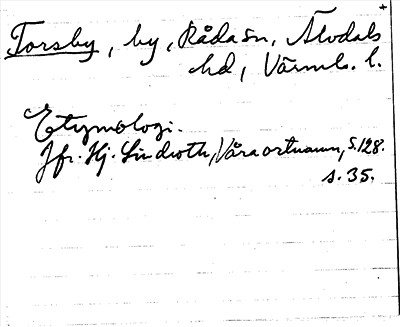 +
Torsby, by, Råda sn, Älvdals
hd, Värml. l.
Etymologi.
Jfr. Hj. Lindroth, Våra ortnamn, S. 128.
s. 35.